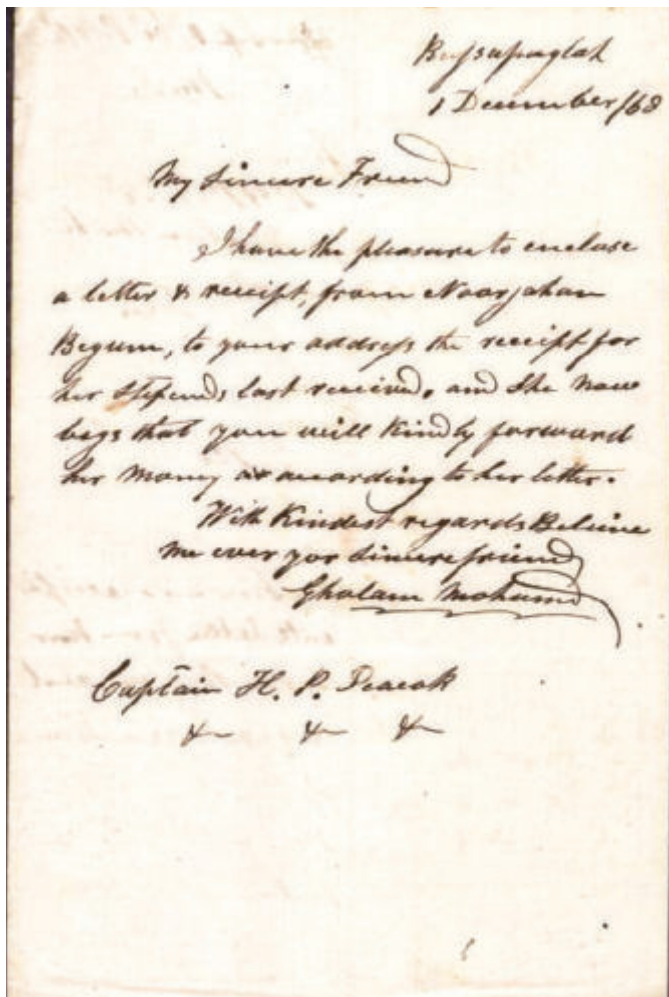 Bussapaglah
1 December /68
My Sincere Friend
I have the pleasure to enclose
a letter & receipt, from Noorjahan
Begum, to your address the receipt for
her stipends last received, and She now
begs that you will Kindly forward
her Money as according to her letter.
With Kindest regards Believe
me ever yor Sincere friend
Gholam Mohamed
Captain H. P. Peacok
&c &c &c